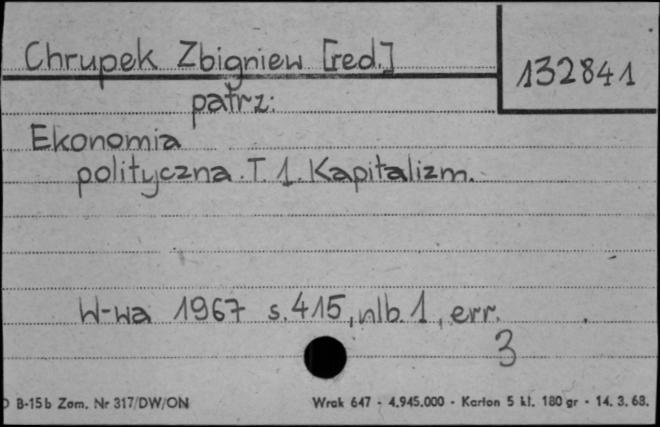 Chrupek Zbigniew [red.]
132841
patrz:
Ekonomia
polityczna. T. 1. Kapitalizm.
W-wa 1967 s. 415, nlb. 1, err.
3
B-15b Zam. Nr 317/DW/ON
Wrak 647 - 4.945.000 - Karton 5 kl. 180 gr - 14. 3. 68.